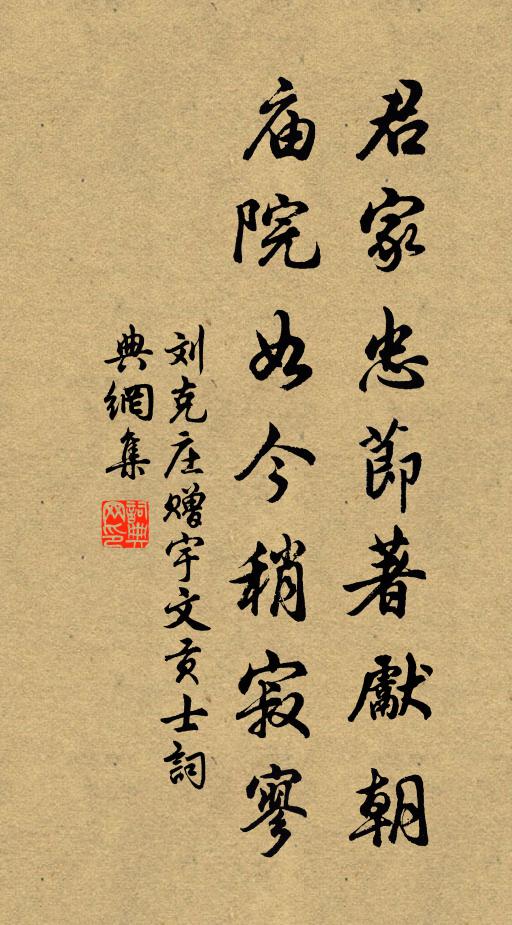 君家忠節著獻朝
庙院如今稍寂寥
刘克庄赠宇文贡士詞
典網集
詞典
网印